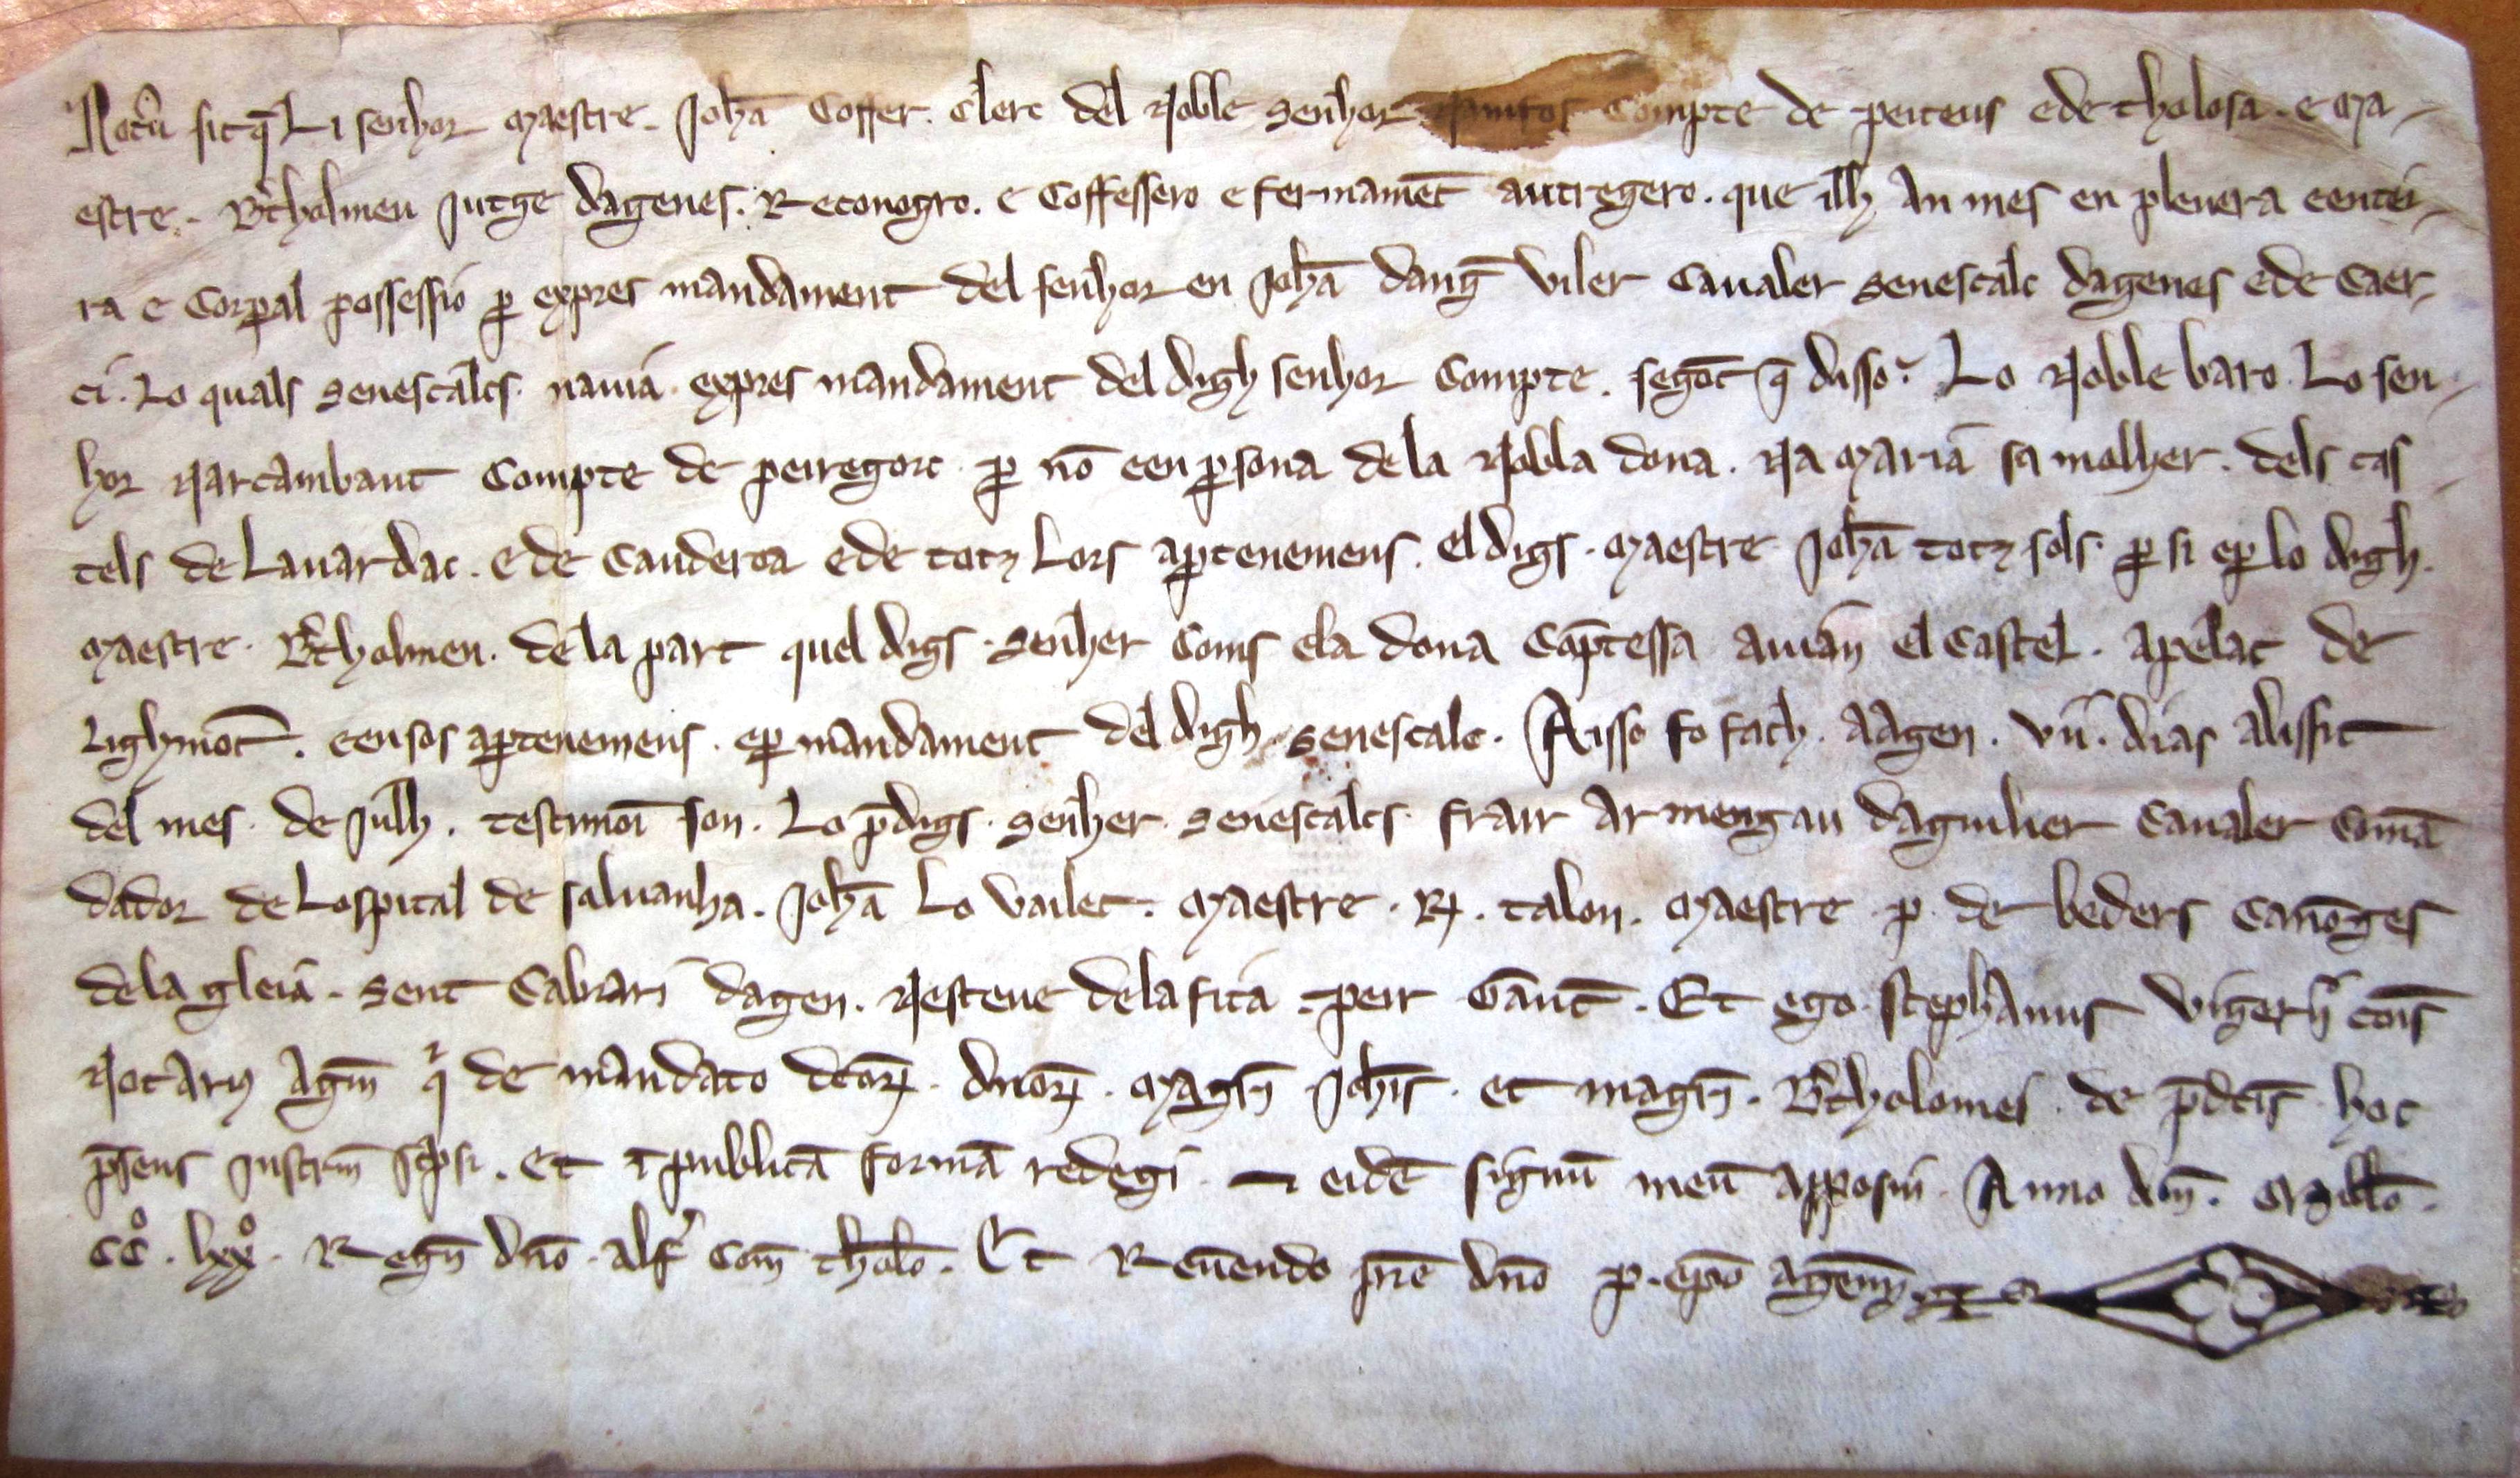 Notũ sit q̃ Li senhor maestre. Johã Coffer. Clerc del Noble senhor Namfos Compte de peiteus e de tholosa. e Ma-
estre. B̃tholmeu Jutge dagenes. Reconogro. e Coffessero e fermamẽt autregero. que illh An mes en plenera e entei-
ra e Corꝑal possessio ꝑ expres mandament del senhor en Johã dang̃ viler Caualer senescalc dagenes e de Caer-
ci. Lo quals senescalcs. nauia expres mandament del digh senhor Compte. segõt q̃ disso. Lo Noble baro. Lo sen-
hor Narcambaut Compte de peiregorc. ꝑ nõ e en ꝑsona de la Nobla dona. Na Maria sa molher. dels cas
tels de Lauardac. e de Cauderoa e de totz Lors aꝑtenemens. el digs. Maestre Johã totz sols. ꝑ si e ꝑ lo digh.
Maestre. B̃tholmeu. de la part quel digs. senher Coms e la dona Cõptessa auian el Castel. apelat de
Lighmõt. e en sos aꝑtenemens. e ꝑ mandament del digh senescalc. Aisso fo fach. a Agen. vii. dias alissit
del mes. de Julh. testimoi son. Lo p̃digs. senher. senescalcs. frair Armengau daguilier Caualer Comã
dador de Lospital de saluanha. Johã Lo vailet. Maestre. R. talon. Maestre. p. de beders Canõges
de la gleia. sent Cabrari dagen. Nesteue de la fita. peir Gãut. Et ego. stephanus vigerii cõis
Notarius Agen̄ q̇ de mandato dc̃orꝝ. dñorꝝ. Magr̃i Joh̃is. et magr̃i. B̃tholomei. de p̃dc̃is. hoc
p̃sens Instrm̃ sc̃psi. et ĩ publicã formã redegi. ⁊ eidẽ signũ meũ apposui. Anno dñi. Mill̃o.
CC̊. lxx̊. Regñ dño. alf' Com̃ thol̃o. Et Reũendo p̃re dño p. ep̃o Agen̄n